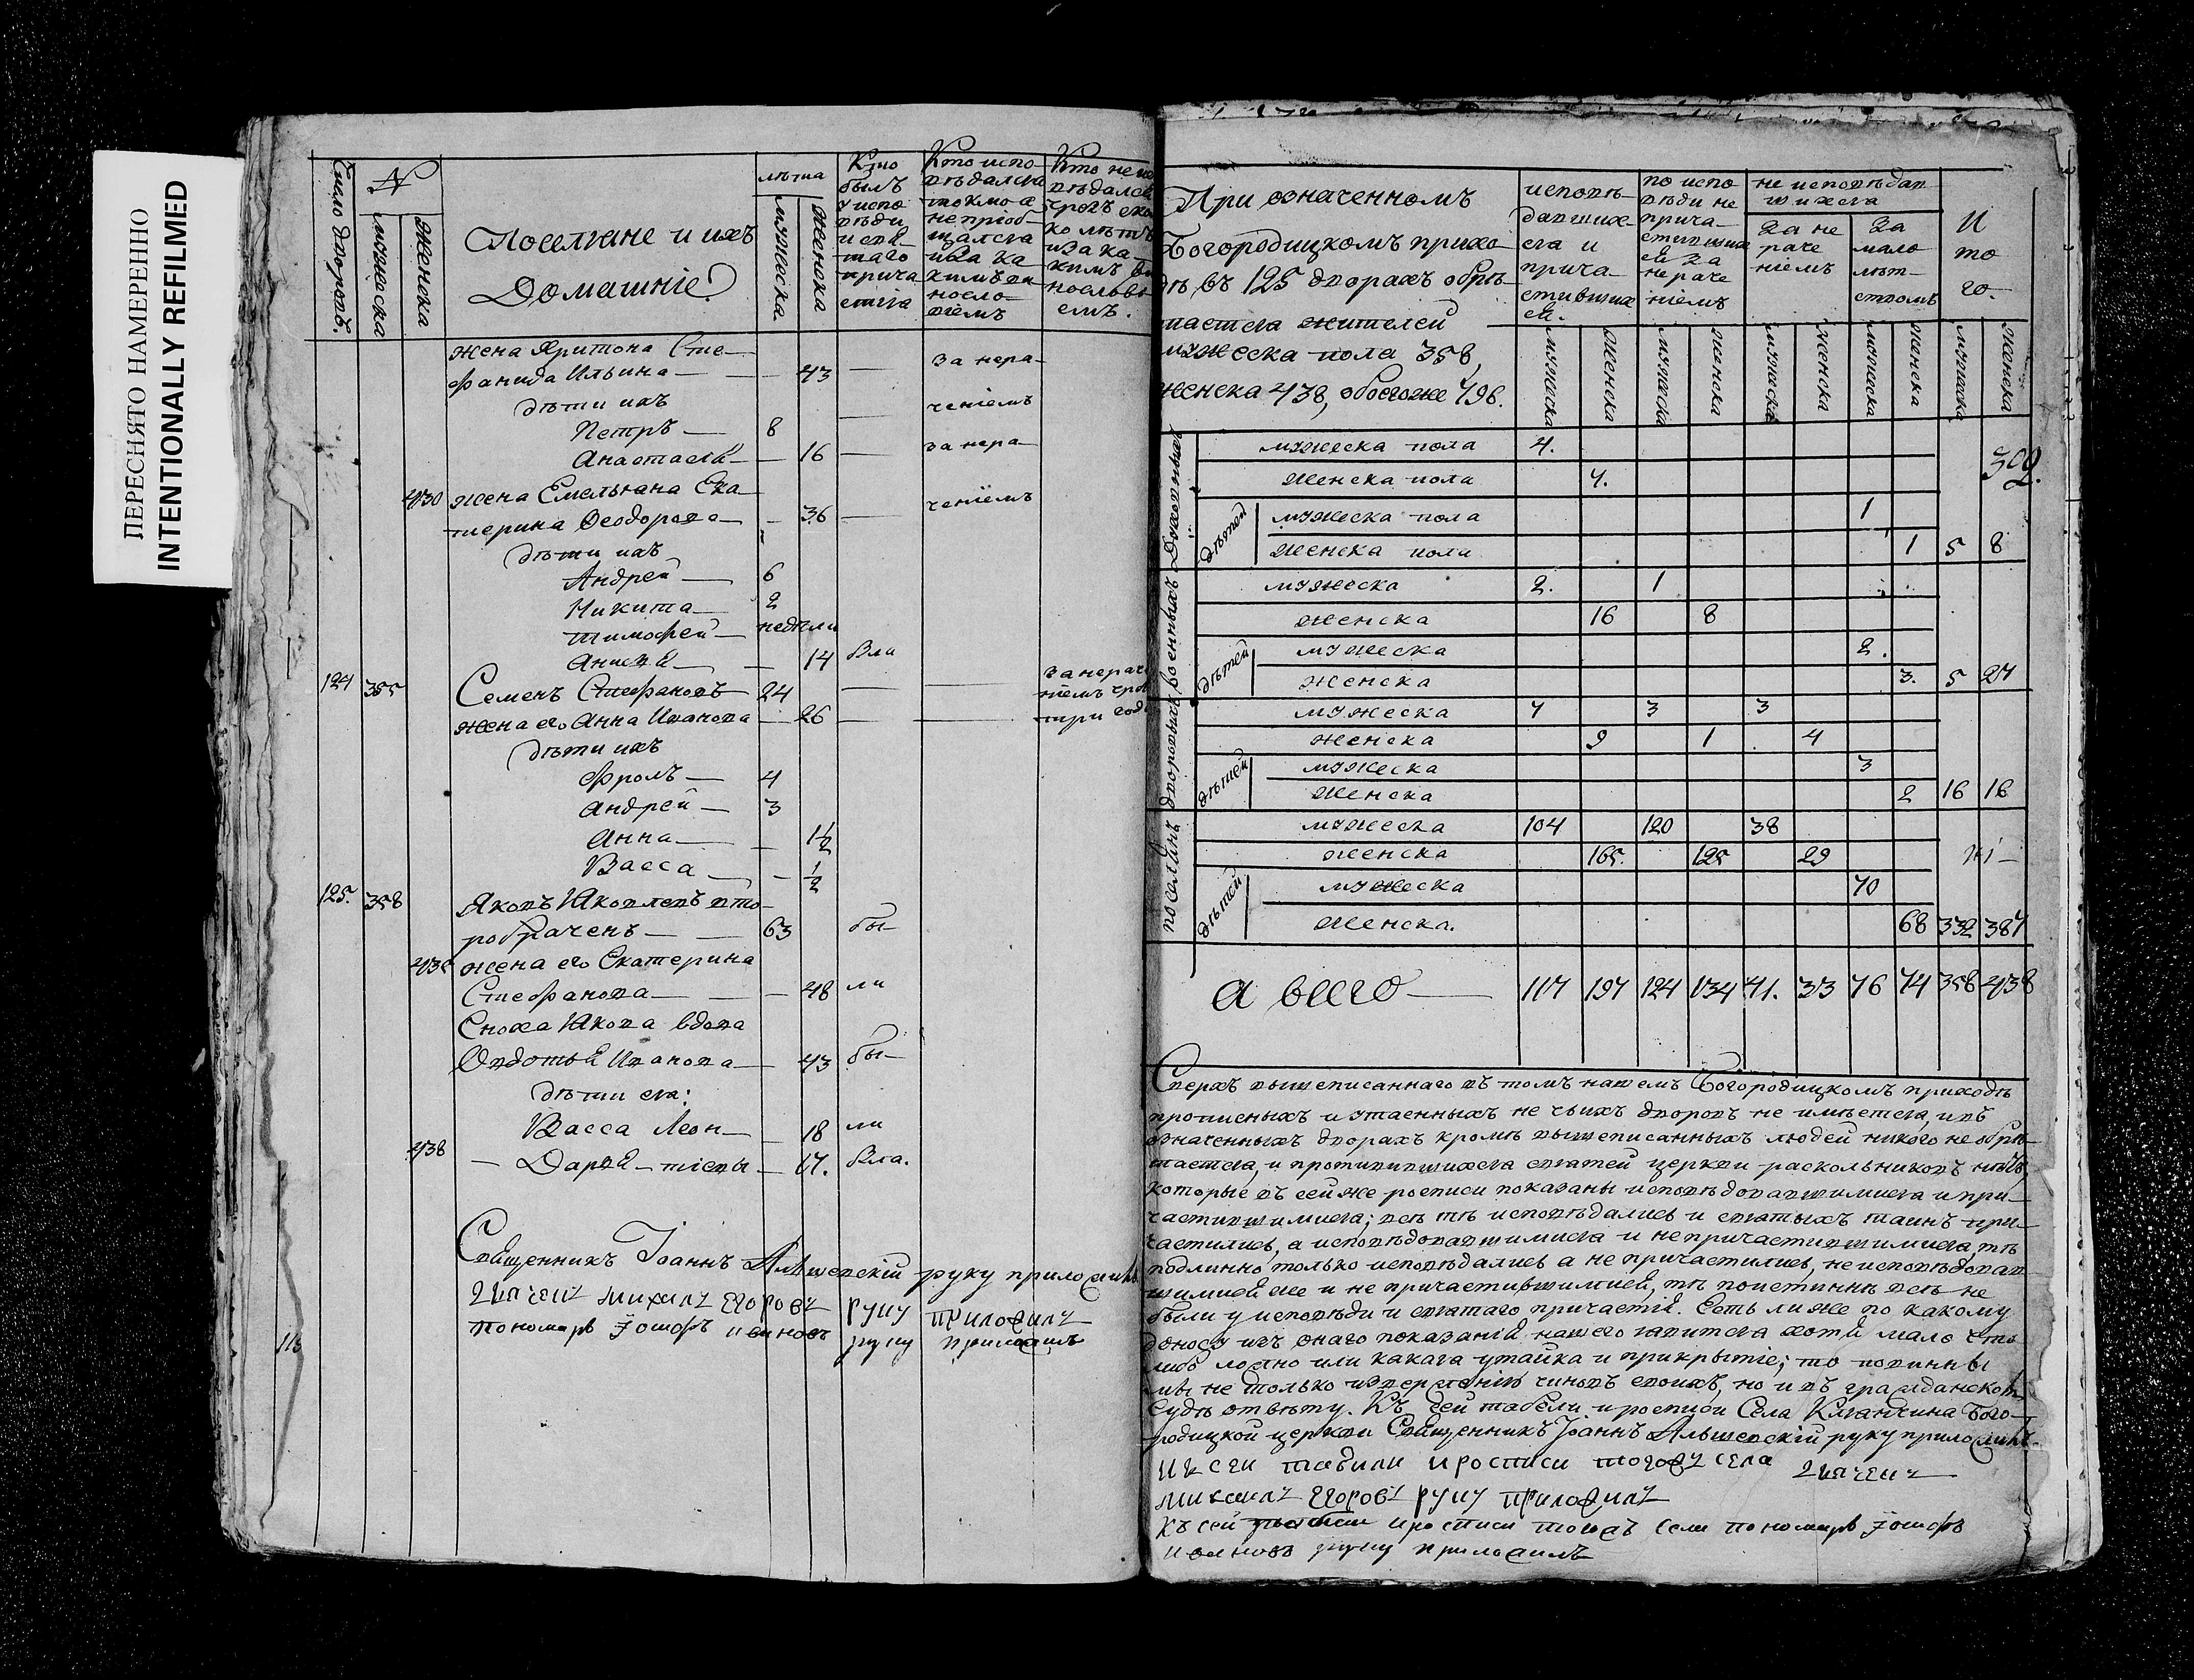 ПЕРЕСНЯТО НАМЕРЕННО
INTENTIONALLY REFILMED
Число дворовъ.
№
мужеска
женска
Поселяне и ихъ
Домашніе
лѣта
мужеска
женска
Кто
былъ
у испо
вѣди
и свя
таго
прича
стія
Кто испо
вѣдался
токмо а
не пріоб
щался
и за ка
кимъ ви
носло
віемъ
Кто не испо
вѣдался
ко лѣтъ
и за ка
кимъ ви
нословi
емъ.
жена Харитона Сте
фанида Ильина — 43 — за нера
дѣти ихъ ченіемъ
Петръ — 8
Анастасія — 16 — за нера
430 жена Емельяна Ека ченіемъ
терина Ѳеодорова — 36 —
дѣти ихъ
Андрей — 6
Никита — 2
Тимофей — недѣли
Анисія — 14 Бла
124 355 Семенъ Стефановъ 24 — — за нераче
жена его Анна Иванова — 26 — — ніемъ
три года
дѣти ихъ
Фролъ — 4
Андрей — 3
Анна — 1 1/2
Васса — 1/2
125. 358 Яковъ Яковлевъ вто
робраченъ — 63 бы
435 жена его Екатерина
Стефанова — 48 ли
Сноха Якова вдова
Овдотья Иванова — 43 бы
дѣти ея:
Васса Леон — 18 ли
438 — Дарья — тіевы — 17. Бла.
Священникъ Іоаннъ Альшевскій руку приложилъ
Дьячекъ Михаилъ Егоровъ руку приложилъ
Пономарь Іосифъ Ивановъ руку приложилъ
При означенномъ
Богородицкомъ прихо
дѣ въ 125 дворахъ обрѣ
тается жителей
мужеска пола 358,
женска 438, обоегоже 796.
исповѣ
давших
ся и
прича
стивших
ся.
по испо
вѣди не
прича
стивших
ся за
нераче
ніемъ
не исповѣдав
шихся
за не
раче
ніемъ
за
мало
лѣт
ствомъ
И
то
го.
мужеска женска мужеска женска мужеска женска мужеска женска мужеска женска
Духовныхъ
мужеска пола 4.
женска пола 7.
дѣтей
мужеска пола 1
женска пола 1 5 8
военныхъ
мужеска 2. 1
женска 16 8
дѣтей
мужеска 2.
женска 3. 5 27
дворовыхъ
мужеска 7 3 3
женска 9 1 4
дѣтей
мужеска 3
женска 2 16 16
поселянъ
мужеска 104 120 38
женска 165. 125 29
дѣтей
мужеска 70
женска. 68 332 387
А всего — 117 197 124 134 41. 33 76 74 358 438
Сверхъ вышеписаннаго въ томъ нашемъ Богородицкомъ приходѣ
прописныхъ и утаенныхъ не чьихъ дворовъ не имѣется, и въ
означенныхъ дворахъ кромѣ вышеписанныхъ людей никого не обрѣ
тается, и противившихся святей церкви раскольниковъ нѣтъ,
которые въ сей же росписи показаны исповѣдовавшимися и при
частившимися; всѣ тѣ исповѣдались и святыхъ таинъ при
частились, а исповѣдовавшимися и непричастившимися, тѣ
подлинно только исповѣдались а не причастились, не исповѣдовав
шимися же и не причастившимися, тѣ поистинны всѣ не
были у исповѣди и святаго причастія. Есть ли же по какому
доносу изъ онаго показанія нашего явится хотя мало что
либо ложно или какая утайка и прикрытіе; то повинны
мы не только изверженія чиновъ своихъ, но и въ гражданском
судѣ отвѣту. Къ сей табели и росписи Села Богo
родицкой церкви Священникъ Іоаннъ Альшевскій руку приложилъ.
Къ сей табели и росписи тогожъ села дьячекъ
Михаилъ Егоровъ руку приложилъ
Къ сей и росписи тогожъ села пономарь Іосифъ
Ивановъ руку приложилъ